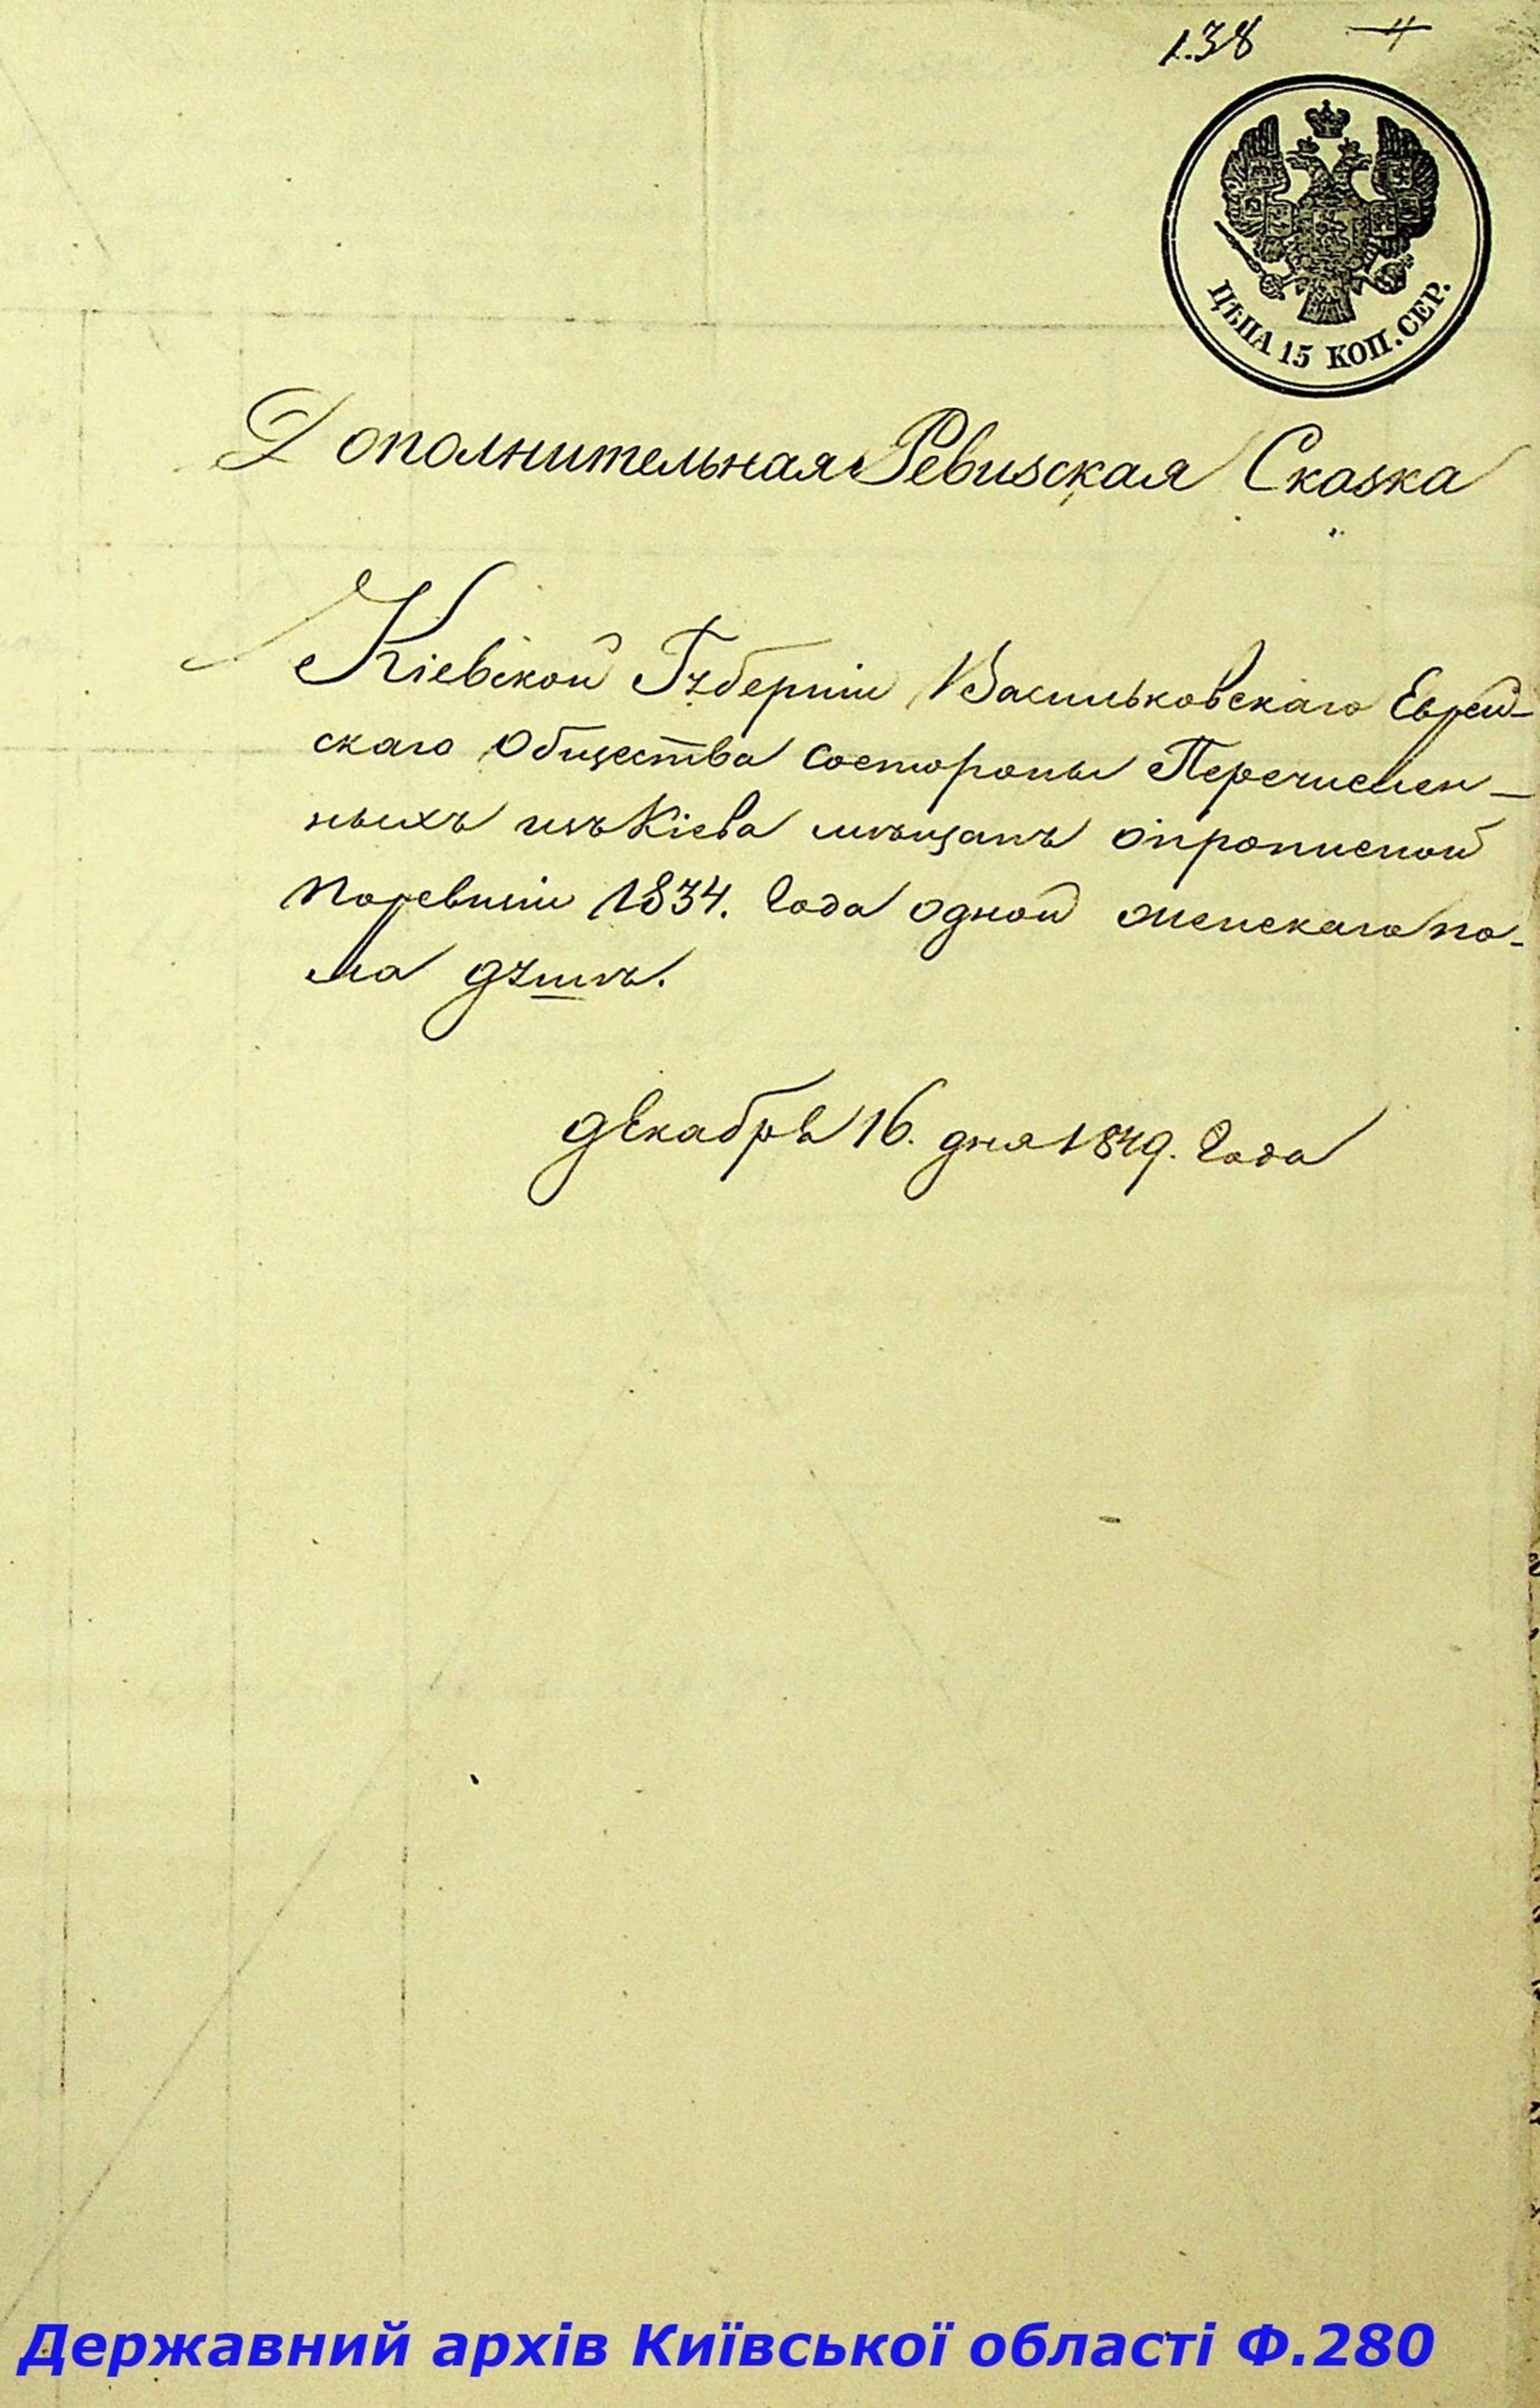 138 4
ЦѢНА 15 КОП. СЕР.
Дополнительная Ревизская Сказка
Кіевской Губерніи Васильковскаго Еврей-
скаго Общества состороны Перечислен-
ныхъ изъ Кіева мѣщанъ опрописной
поревизіи 1834. Года одной женскаго по-
ла душѣ.
декабря 16. дня 1849. Года
Державний архів Київської області Ф.280